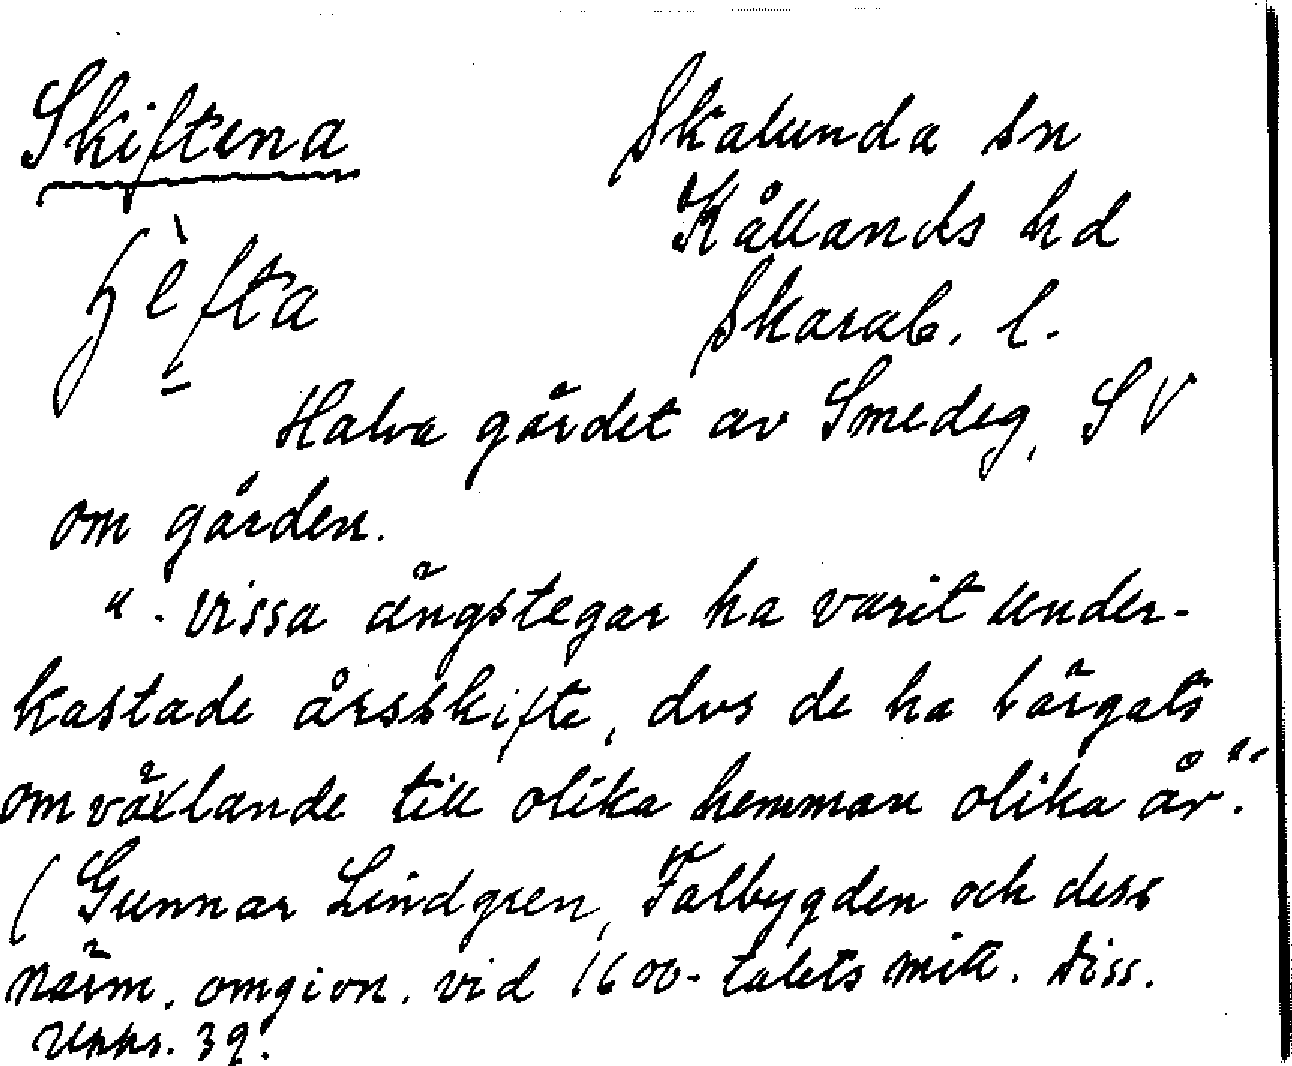 Skiftena Skalunda sn
Kållands hd
Skarab. l.
Halva gärdet av Smedeg, SV
om gården.
". vissa ängstegar ha varit under-
kastade årsskifte, dvs de ha bärgats
omväxlande till olika hemman olika år."
(Gunnar Lindgren, Falbygden och dess
närm. omgivn. vid 1600-talets mitt. Diss.
Upps. 39.